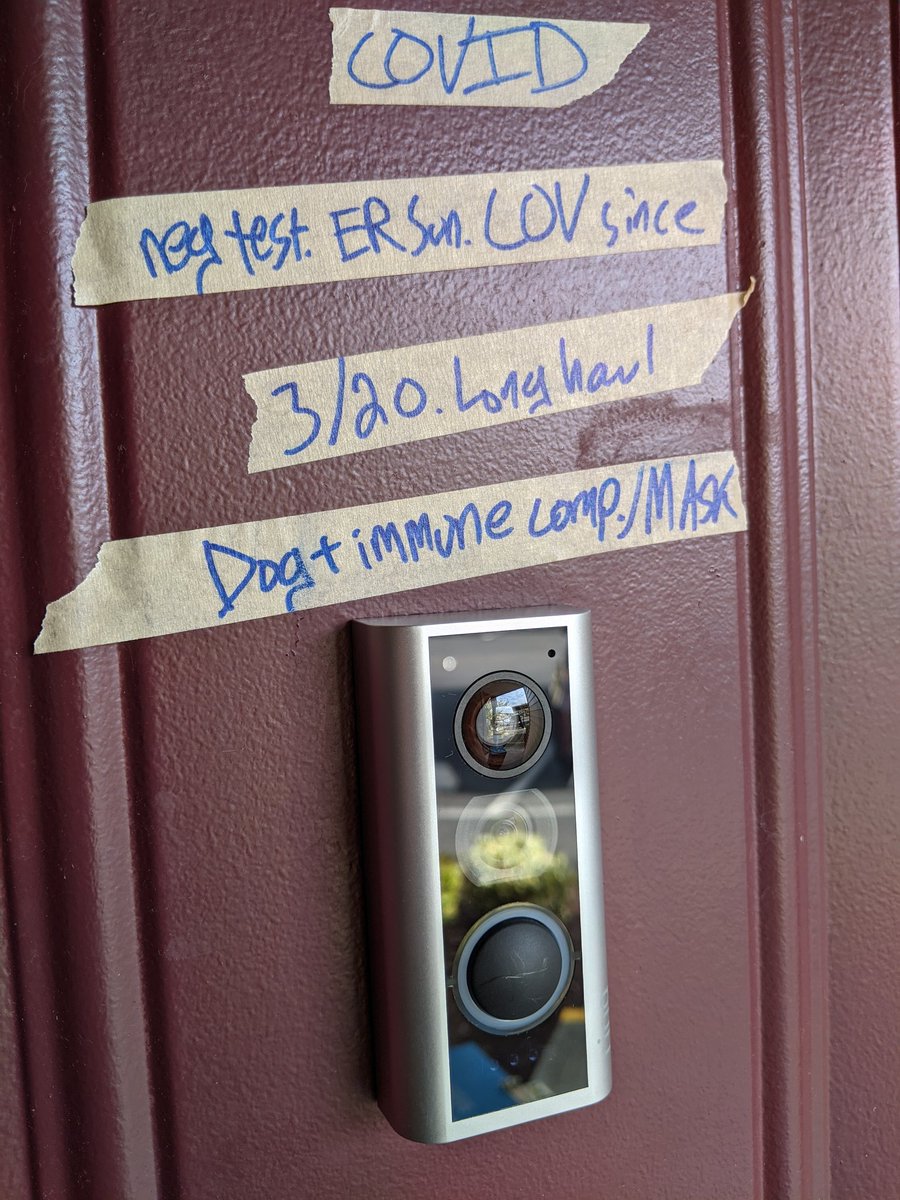 COVID
neg test. ER Sun. COV since
3/20. Long haul
Dog + immune comp./MASK